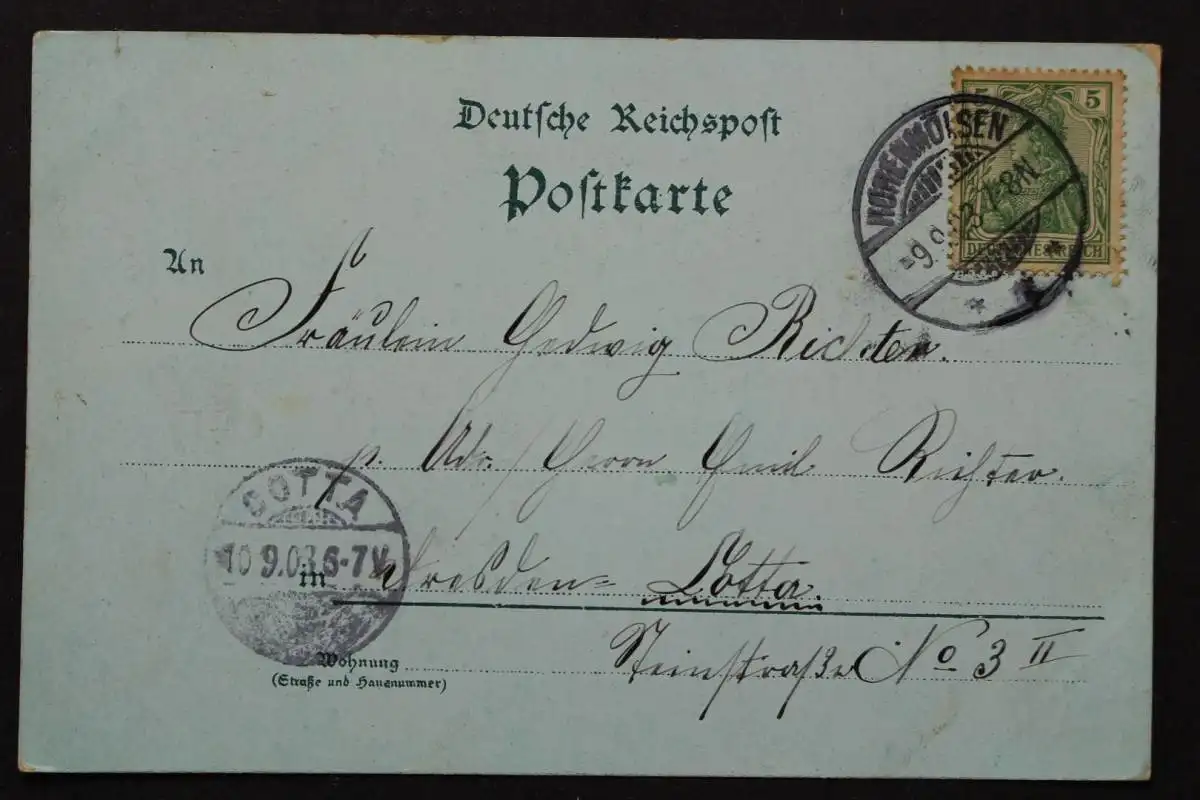 Deutsche Reichspost
Postkarte
5 5
DEUTSCHES REICH
HOHENMÖLSEN
9.9.03 7-8N.
An
Fräulein Hedwig Richter.
p. Adr. / Herrn Emil Richter.
COTTA
10.9.03. 6-7V.
in Dresden= Cotta.
Steinstraße No 3 II
Wohnung
(Straße und Hausnummer)